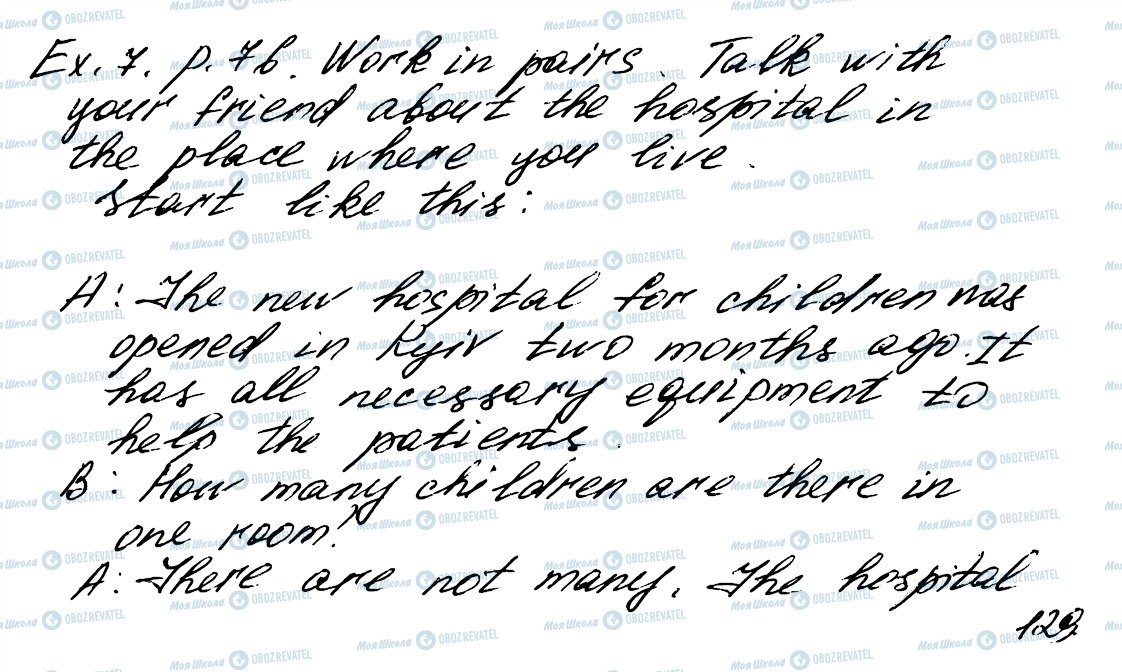 Ex. 7. p. 76. Work in pairs. Talk with
your friend about the hospital in
the place where you live.
Start like this:
A: The new hospital for children was
opened in Kyiv two months ago. It
has all necessary equipment to
help the patients.
B: How many children are there in
one room?
A: There are not many. The hospital
129
Моя Школа OBOZREVATEL